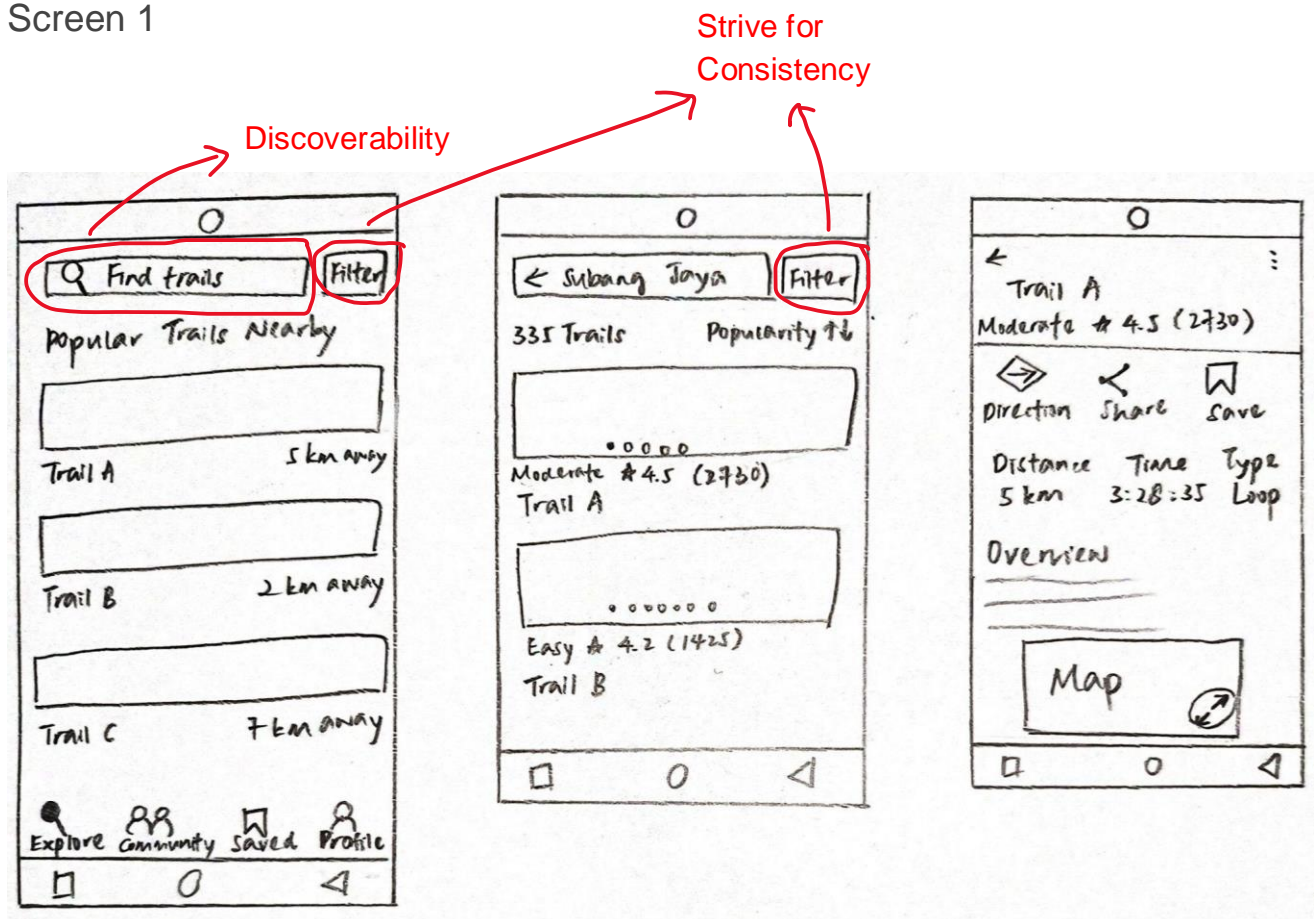 Screen 1
Strive for
Consistency
Discoverability
Find trails
Filter
Popular Trails Nearby
Trail A 5 km away
Trail B 2 km away
Trail C 7 km away
Explore Community Saved Profile
← Subang Jaya
Filter
335 Trails Popularity ↑↓
Moderate ☆ 4.5 (2730)
Trail A
Easy ☆ 4.2 (1425)
Trail B
←
Trail A
Moderate ☆ 4.5 (2730)
Direction Share Save
Distance Time Type
5 km 3:28:35 Loop
Overview
Map